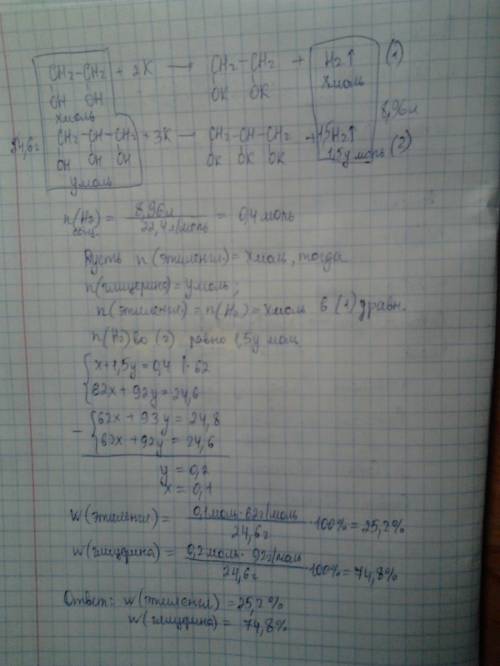 CH₂-CH₂ + 2K → CH₂-CH₂ + H₂↑ (1)
OH OH OK OK x моль
x моль 8,96л
24,6г CH₂-CH-CH₂ + 3K → CH₂-CH-CH₂ + 1,5H₂↑ (2)
OH OH OH OK OK OK 1,5y моль
y моль
n(H₂) = 8,96л / 22,4 л/моль = 0,4 моль
Пусть n(этиленгл) = x моль, тогда
n(глицерина) = y моль;
n(этиленгл) = n(H₂) = x моль в (1) уравн.
n(H₂) во (2) равно 1,5y мол
{x+1,5y = 0,4 |·62
{62x + 92y = 24,6
- {62x + 93y = 24,8
{62x + 92y = 24,6
y = 0,2
x = 0,1
w(этиленгл) = 0,1моль·62г/моль / 24,6г 100% = 25,2%
w(глицерина) = 0,2моль· 92г/мол / 24,6г 100% = 74,8%
Ответ: w(этиленгл) = 25,2%
w(глицерина) = 74,8%